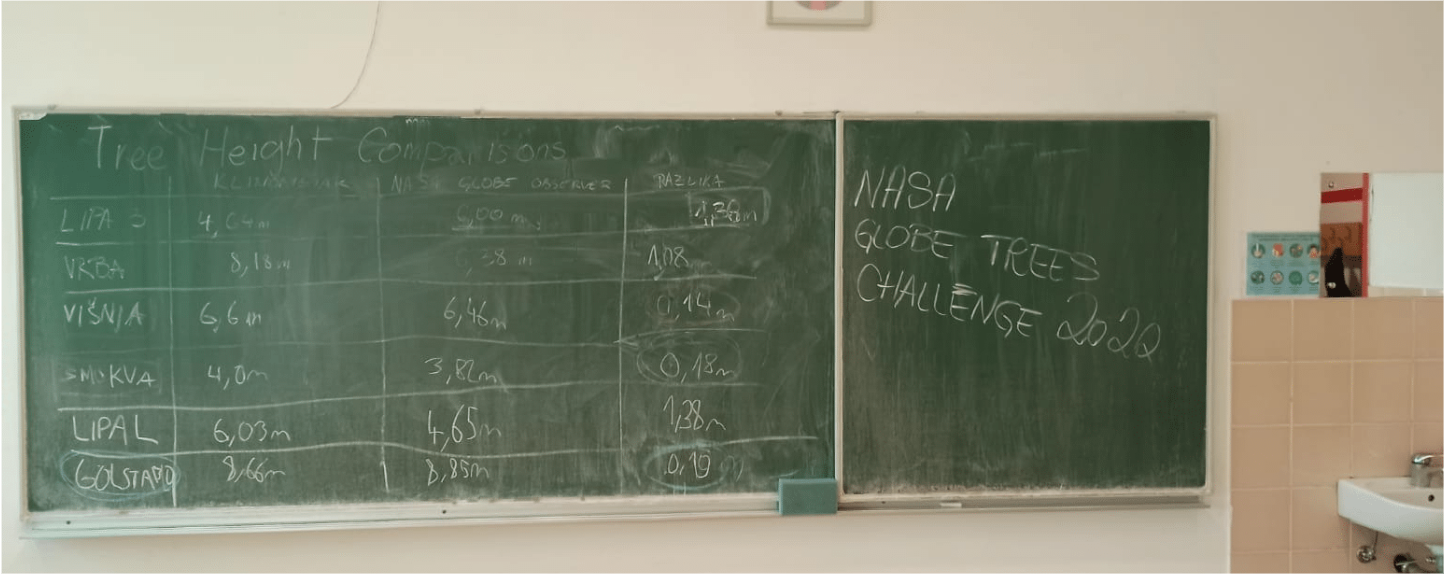 Tree Height Comparisons
KLINOMETAR NASA GLOBE OBSERVER RAZLIKA
LIPA S 4,64m 6,00 m 1,36m
VRBA 8,18m 1,08
VIŠNJA 6,6m 6,46m 0,14m
SMOKVA 4,0m 3,82m 0,18m
LIPA L 6,03m 4,65m 1,38m
8,66m 8,85m 0,19
NASA
GLOBE TREES
CHALLENGE 2022